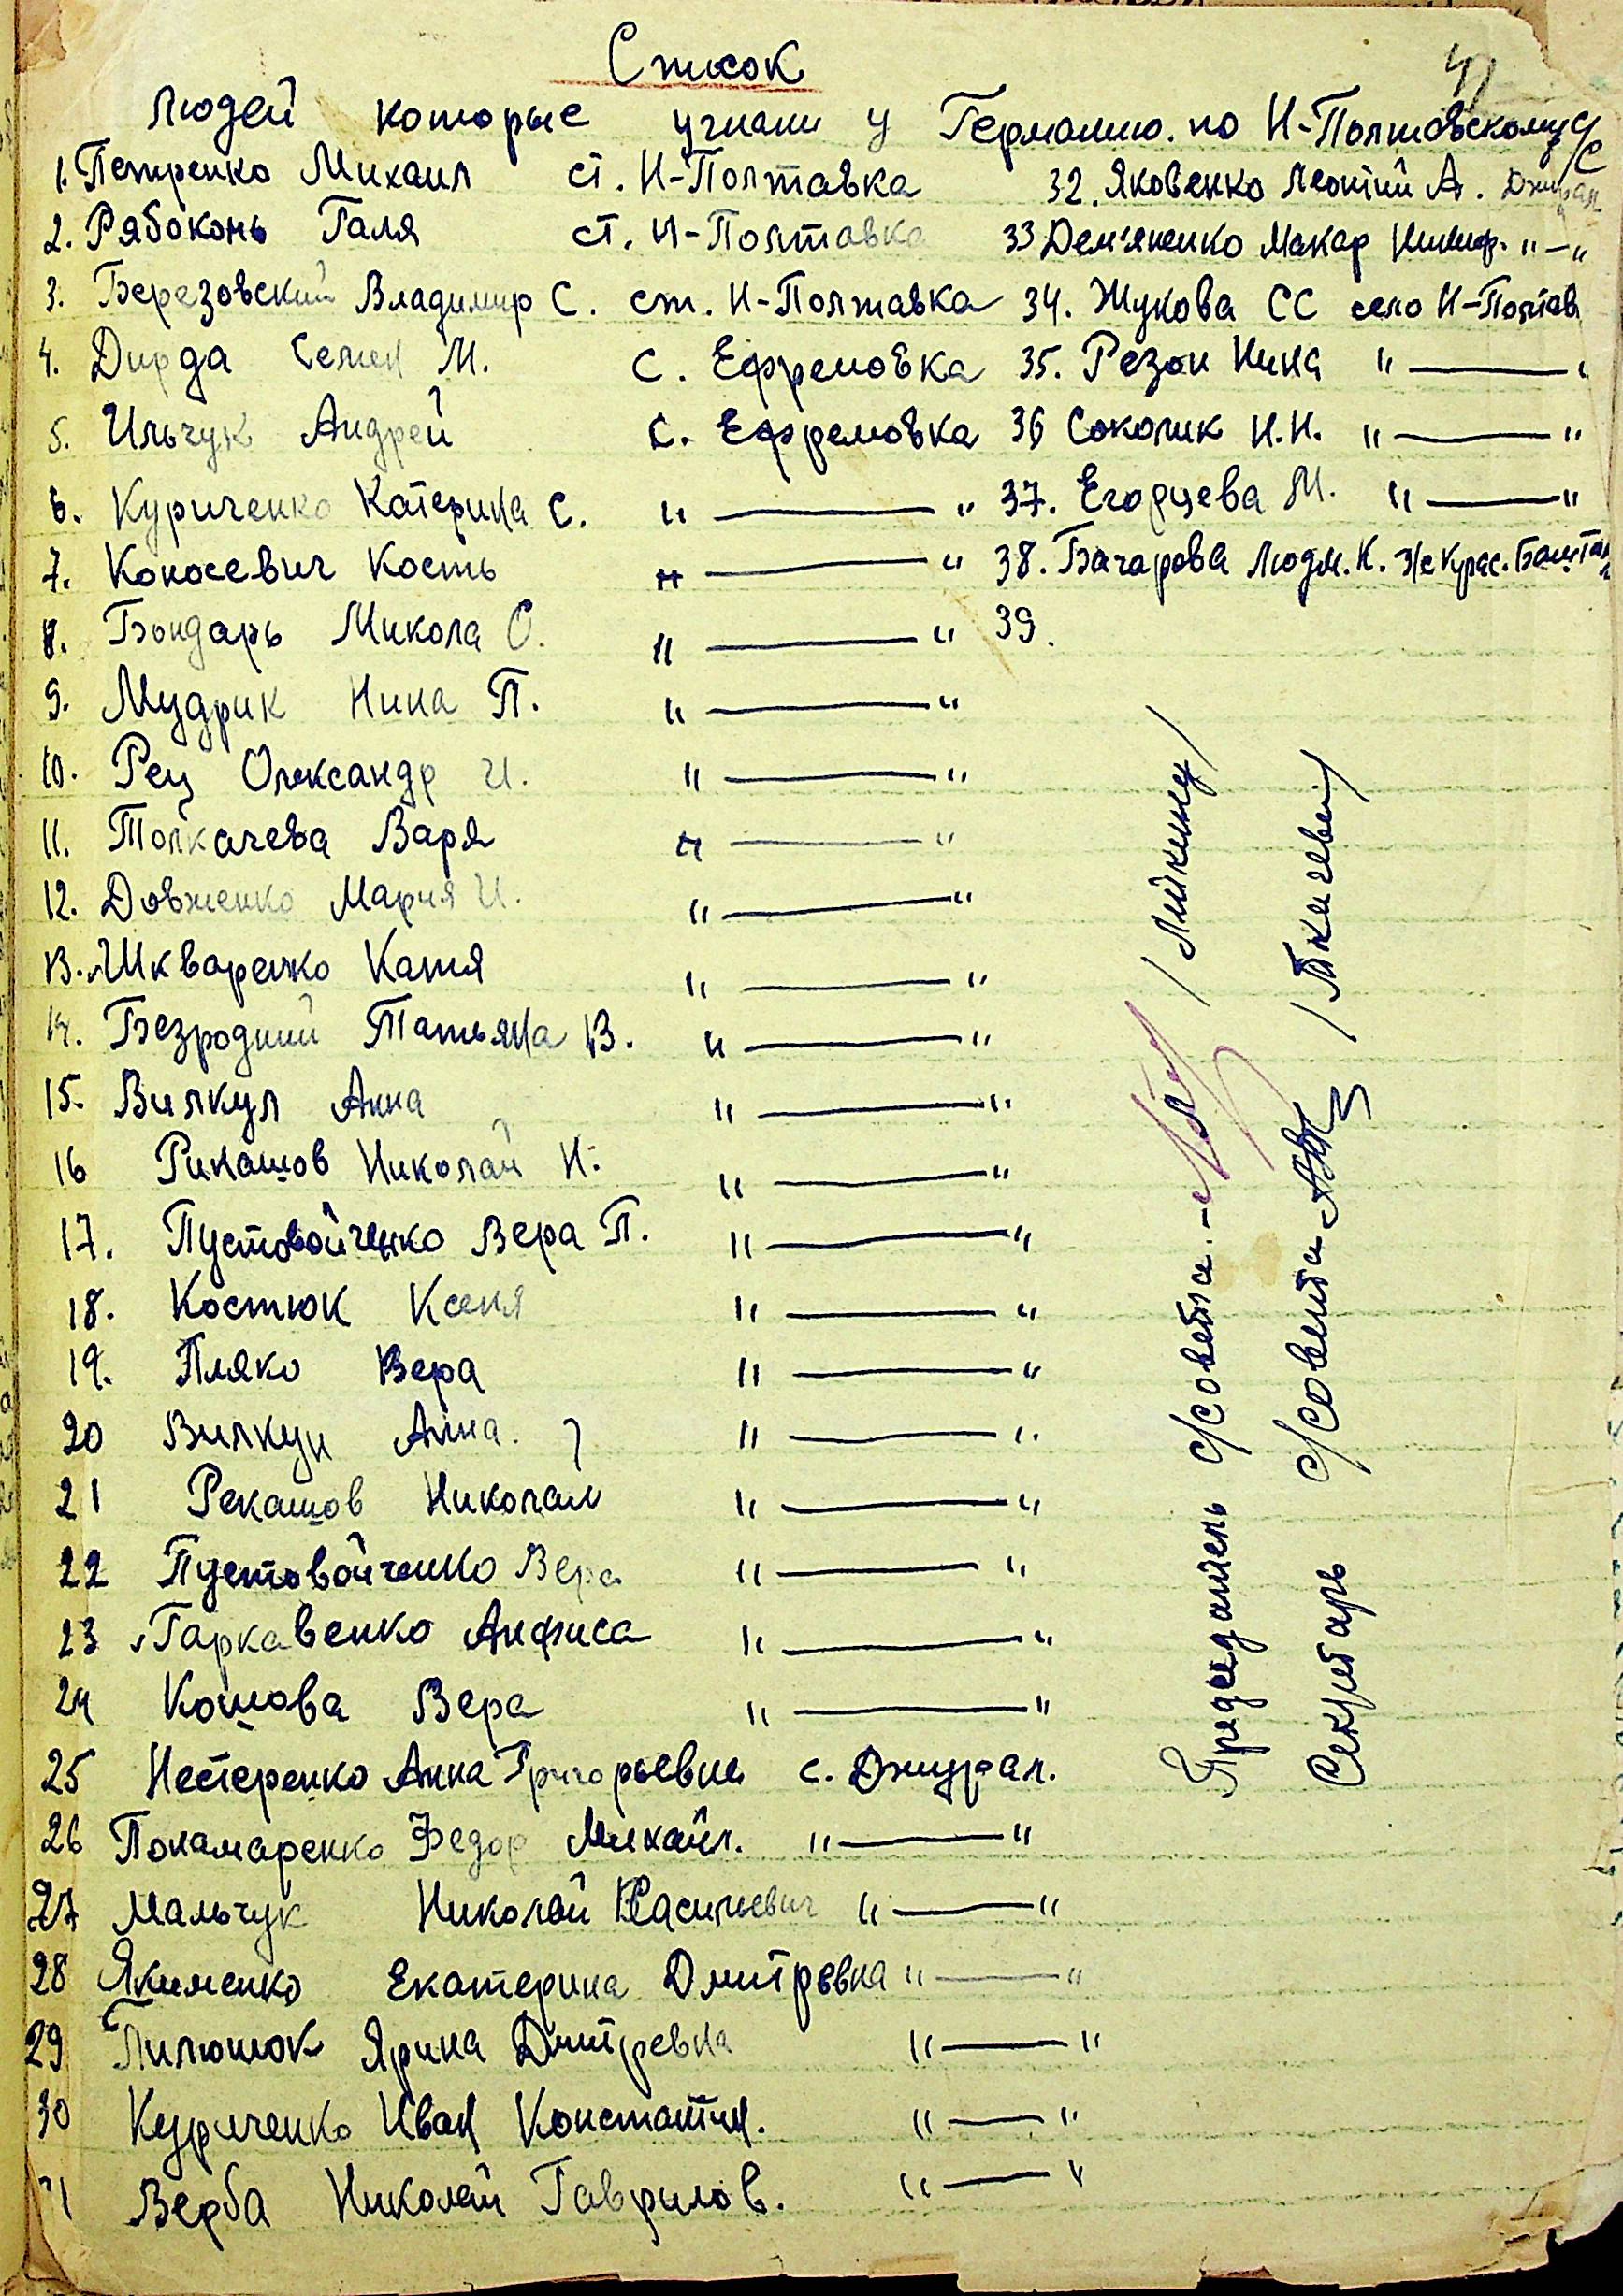 Список
людей которые угнали у Германию. по Н-Полтовскому с/с
1. Петренко Михаил ст. Н-Полтавка
2. Рябоконь Галя ст. Н-Полтавка
3. Березовский Владимир С. ст. Н-Полтавка
4. Дирда Семен М. С. Ефремовка
5. Ильчук Андрей С. Ефремовка
6. Куриченко Катерина С. "——"
7. Коносевич Кость "——"
8. Бондарь Микола О. "——"
9. Мудрик Нина П. "——"
10. Рец Олександр И. "——"
11. Толкачева Варя "——"
12. Довженко Мария И. "——"
13. Шкваренко Катя "——"
14. Безродний Татьяна В. "——"
15. Вилкул Анна "——"
16 Рикашов Николай Н. "——"
17. Пустовойченко Вера П. "——"
18. Костюк Ксеня "——"
19. Пляко Вера "——"
20 Вилкун Анна. "——"
21 Рекашов Николай "——"
22 Пустовойченко Вера "——"
23 Гаркавенко Анфиса "——"
24 Кошова Вера "——"
25 Нестеренко Анна Григорьевна с. Джурал.
26 Понамаренко Федор Михайл. "——"
27 Мальчук Николай Васильевич "——"
28 Якименко Екатерина Дмитревна "——"
29 Пилюшок Ярина Дмитревна "——"
30 Куриченко Иван Константин. "——"
31 Верба Николай Гаврилов. "——"
32. Яковенко Леонтий А. Джурал
33 Дем'яненко Макар Никиф. "—"
34. Жукова СС село Н-Полтав
35. Резан Нина "——"
36 Соколик Н.Н. "——"
37. Егорцева М. "——"
38. Бачарова Людм. К.
39.
Председатель с/совета.
Секретарь с/совета